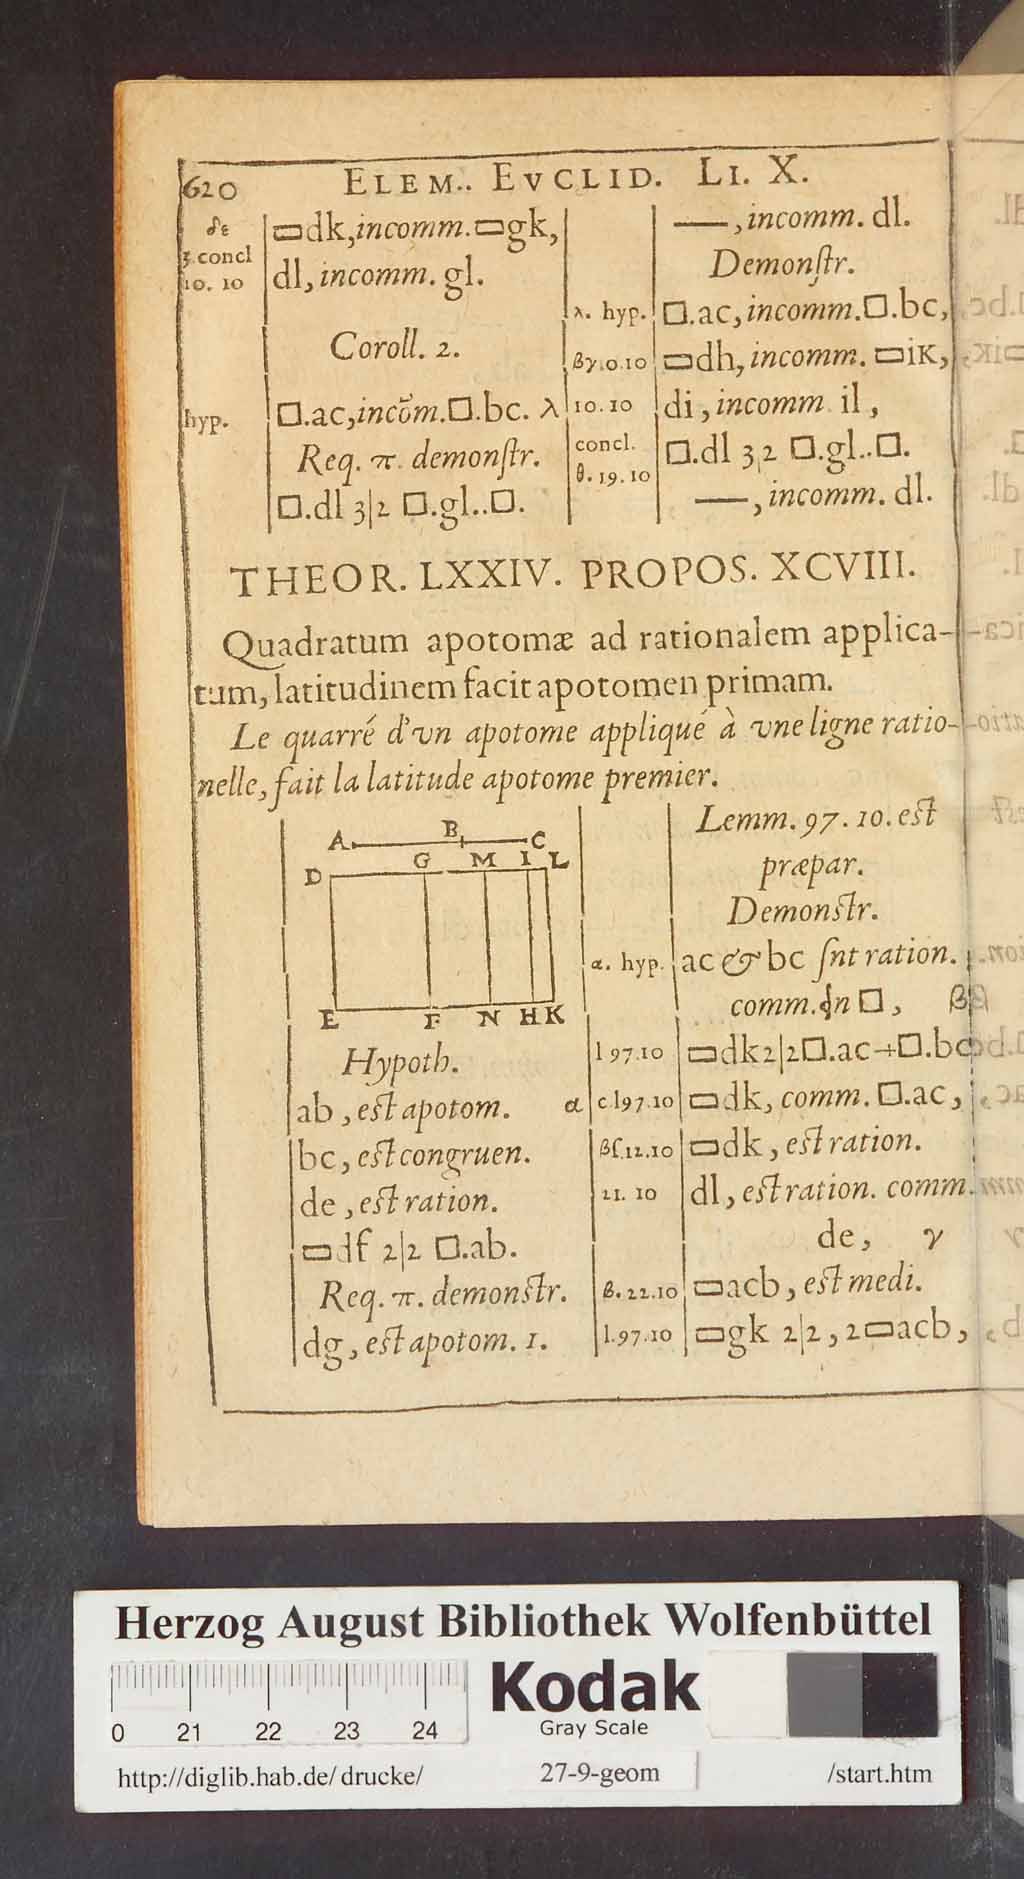 620 ELEM.. EVCLID. LI. X.
δε
3. concl
10. 10
▭dk, incomm. ▭gk,
dl, incomm. gl.
Coroll. 2.
hyp. □.ac, incõm. □.bc. λ
Req. π. demonſtr.
□.dl 3|2 □.gl..□.
—, incomm. dl.
Demonſtr.
λ. hyp. □.ac, incomm. □.bc,
βγ.0.10 ▭dh, incomm. ▭iK,
10.10 di, incomm il,
concl. □.dl 3,2 □.gl..□.
θ. 19. 10 —, incomm. dl.
THEOR. LXXIV. PROPOS. XCVIII.
Quadratum apotomæ ad rationalem applica-
tum, latitudinem facit apotomen primam.
Le quarré d'vn apotome appliqué à vne ligne ratio-
nelle, fait la latitude apotome premier.
A B C
D G M I L
E F N H K
Hypoth.
ab, est apotom. α
bc, est congruen.
de, est ration.
▭df 2|2 □.ab.
Req. π. demonstr.
dg, est apotom. 1.
Lemm. 97. 10. est
præpar.
Demonstr.
α. hyp. ac & bc ſnt ration.
comm. in □, β
l 97.10 ▭dk 2|2 □.ac+□.bc
c.l97.10 ▭dk, comm. □.ac,
βſ.12.10 ▭dk, est ration.
21. 10 dl, est ration. comm.
de, γ
β. 22.10 ▭acb, est medi.
l.97.10 ▭gk 2|2, 2▭acb,
Herzog August Bibliothek Wolfenbüttel
Kodak
Gray Scale
0 21 22 23 24
http://diglib.hab.de/drucke/ 27-9-geom /start.htm